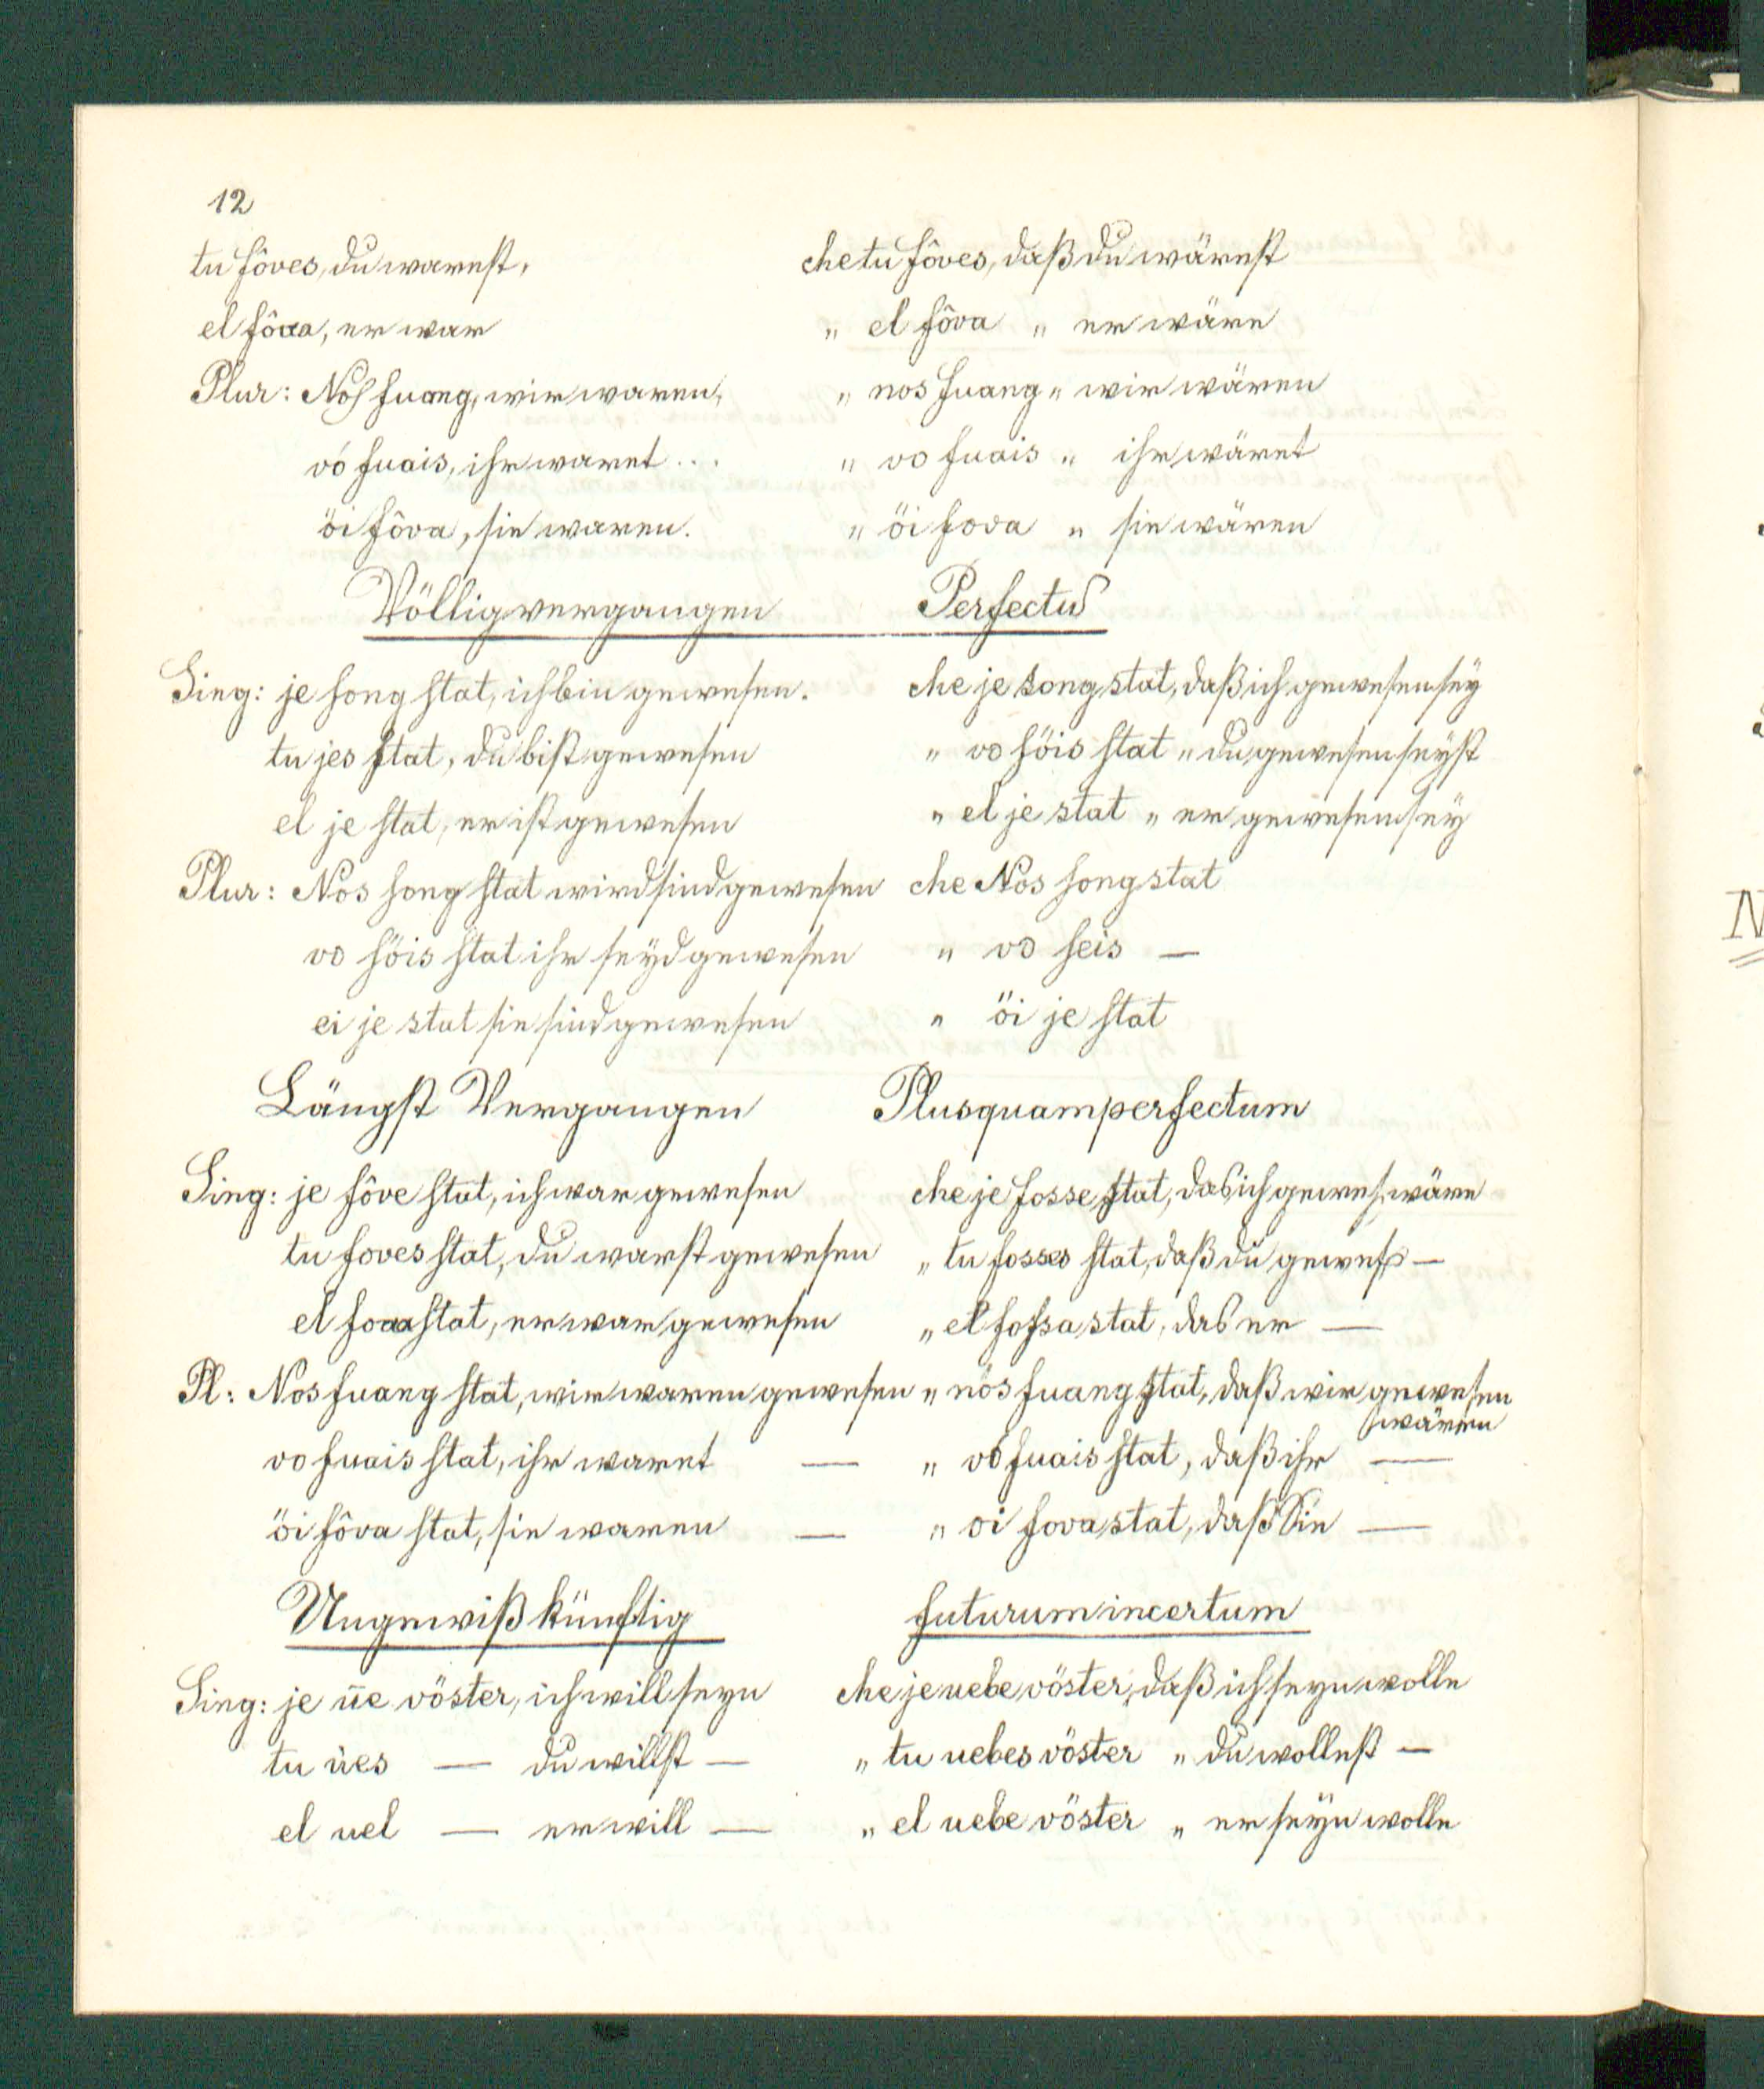 12
tu fôves, du warest, che tu fôves, daß du wärest
el fôva, er war „ el fôva „ er wäre
Plur: Nos fuang, wir waren, „ nos fuang „ wir wären
vó fuais, ihr waret ... „ vo fuais „ ihr wäret
öi fôva, sie waren. „ öi fova „ sie wären
Völlig vergangen Perfectu
Sing: je song stat, ich bin gewesen. che je song stat, daß ich gewesen sey
tu jes stat, du bist gewesen „ vo söis stat „ du gewesen seyst
el je stat, er ist gewesen „ el je stat „ er gewesen sey
Plur: Nos song stat wird sind gewesen che Nos song stat
vo söis stat ihr seyd gewesen „ vo seis —
ei je stat sie sind gewesen „ öi je stat
Längst Vergangen Plusquamperfectum
Sing: je fôve stat, ich war gewesen che je fosse stat, das ich gewes. wäre
tu foves stat, du warst gewesen „ tu fosses stat, daß du gewes —
el fova stat, er war gewesen „ el fossa stat, das er —
Pl: Nos fuang stat, wir waren gewesen „ nos fuang stat, daß wir gewesen
wären
vo fuais stat, ihr waret — „ vó fuais stat, daß ihr —
öi fôva stat, sie waren — „ oi fova stat, daß Sie —
Ungewiß künftig futurum incertum
Sing: je üe vöster, ich will seyn che je uebe vöster, daß ich seyn wolle
tu ües — du willst — „ tu uebes vöster „ du wollest —
el uel — er will — „ el uebe vöster „ er seyn wolle